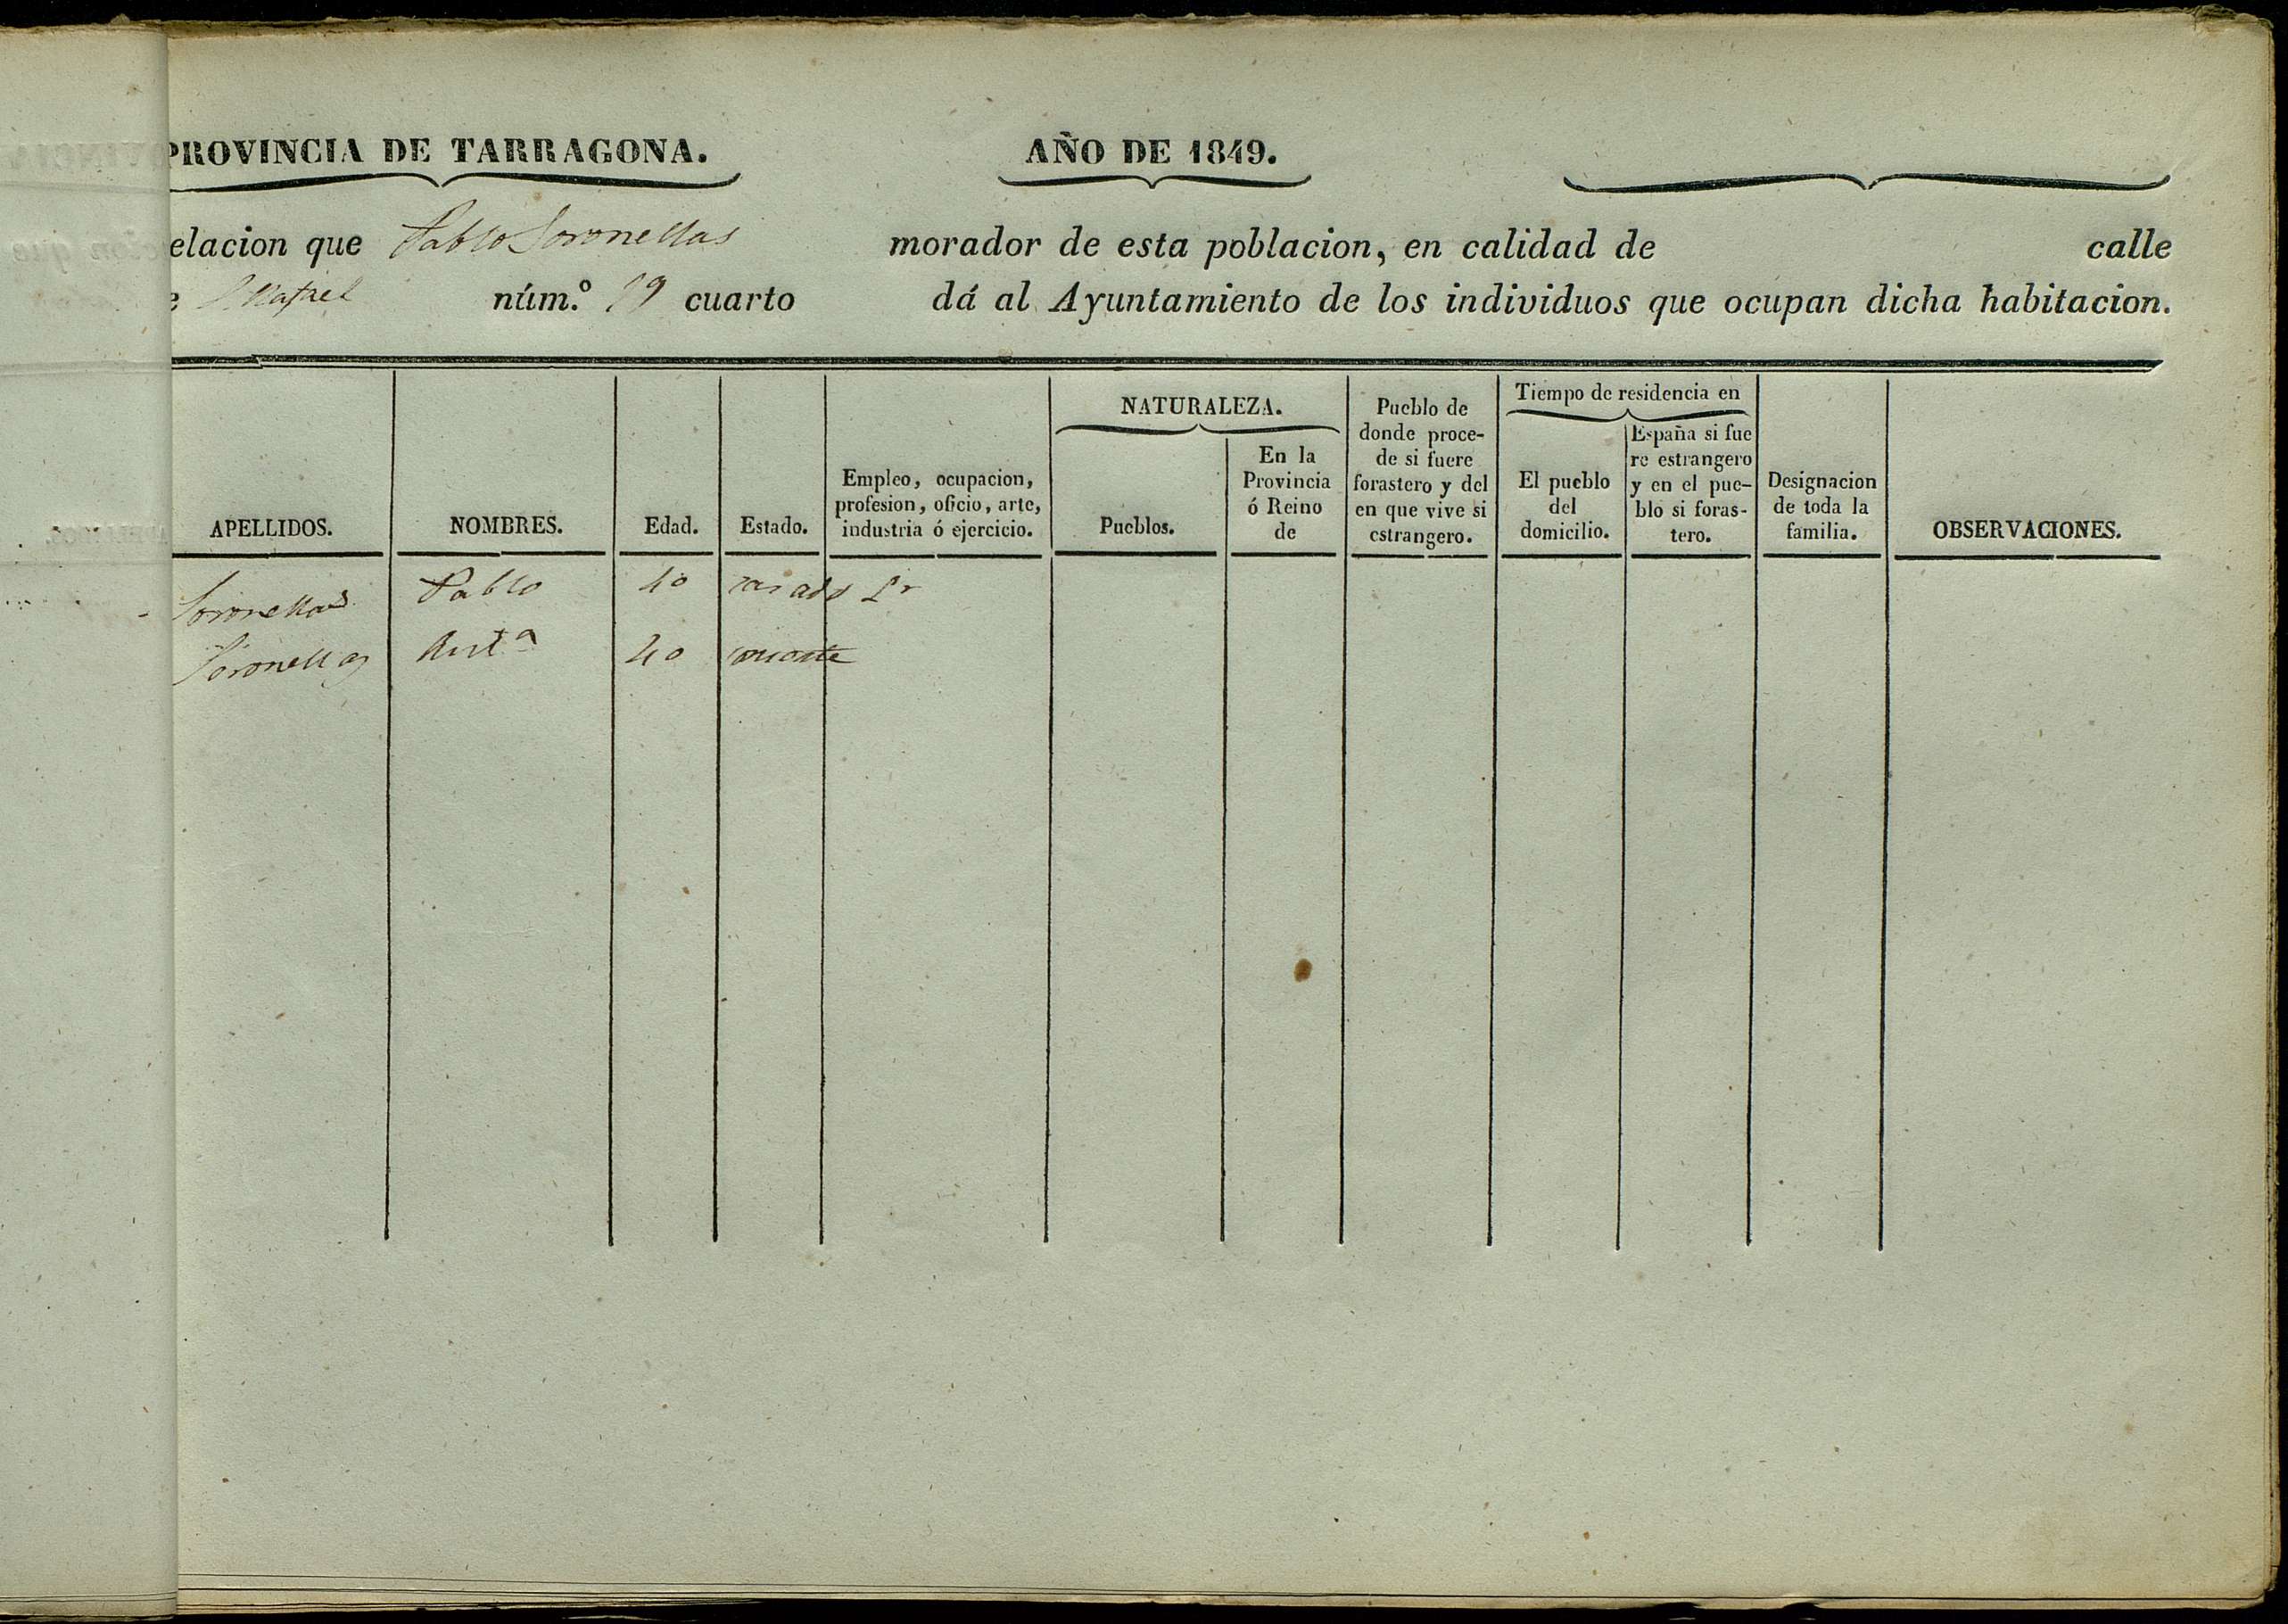 PROVINCIA DE TARRAGONA. AÑO DE 1849.
elacion que Pablo Soronellas morador de esta poblacion, en calidad de calle
e S. Rafael núm.º 19 cuarto dá al Ayuntamiento de los individuos que ocupan dicha habitacion.
APELLIDOS.
NOMBRES.
Edad.
Estado.
Empleo, ocupacion,
profesion, oficio, arte,
industria ó ejercicio.
NATURALEZA.
Pueblos.
En la
Provincia
ó Reino
de
Pueblo de
donde proce-
de si fuere
forastero y del
en que vive si
estrangero.
Tiempo de residencia en
El pueblo
del
domicilio.
España si fue
re estrangero
y en el pue-
blo si foras-
tero.
Designacion
de toda la
familia.
OBSERVACIONES.
Soronellas Pablo 40 casado
Soronellas Antª 40